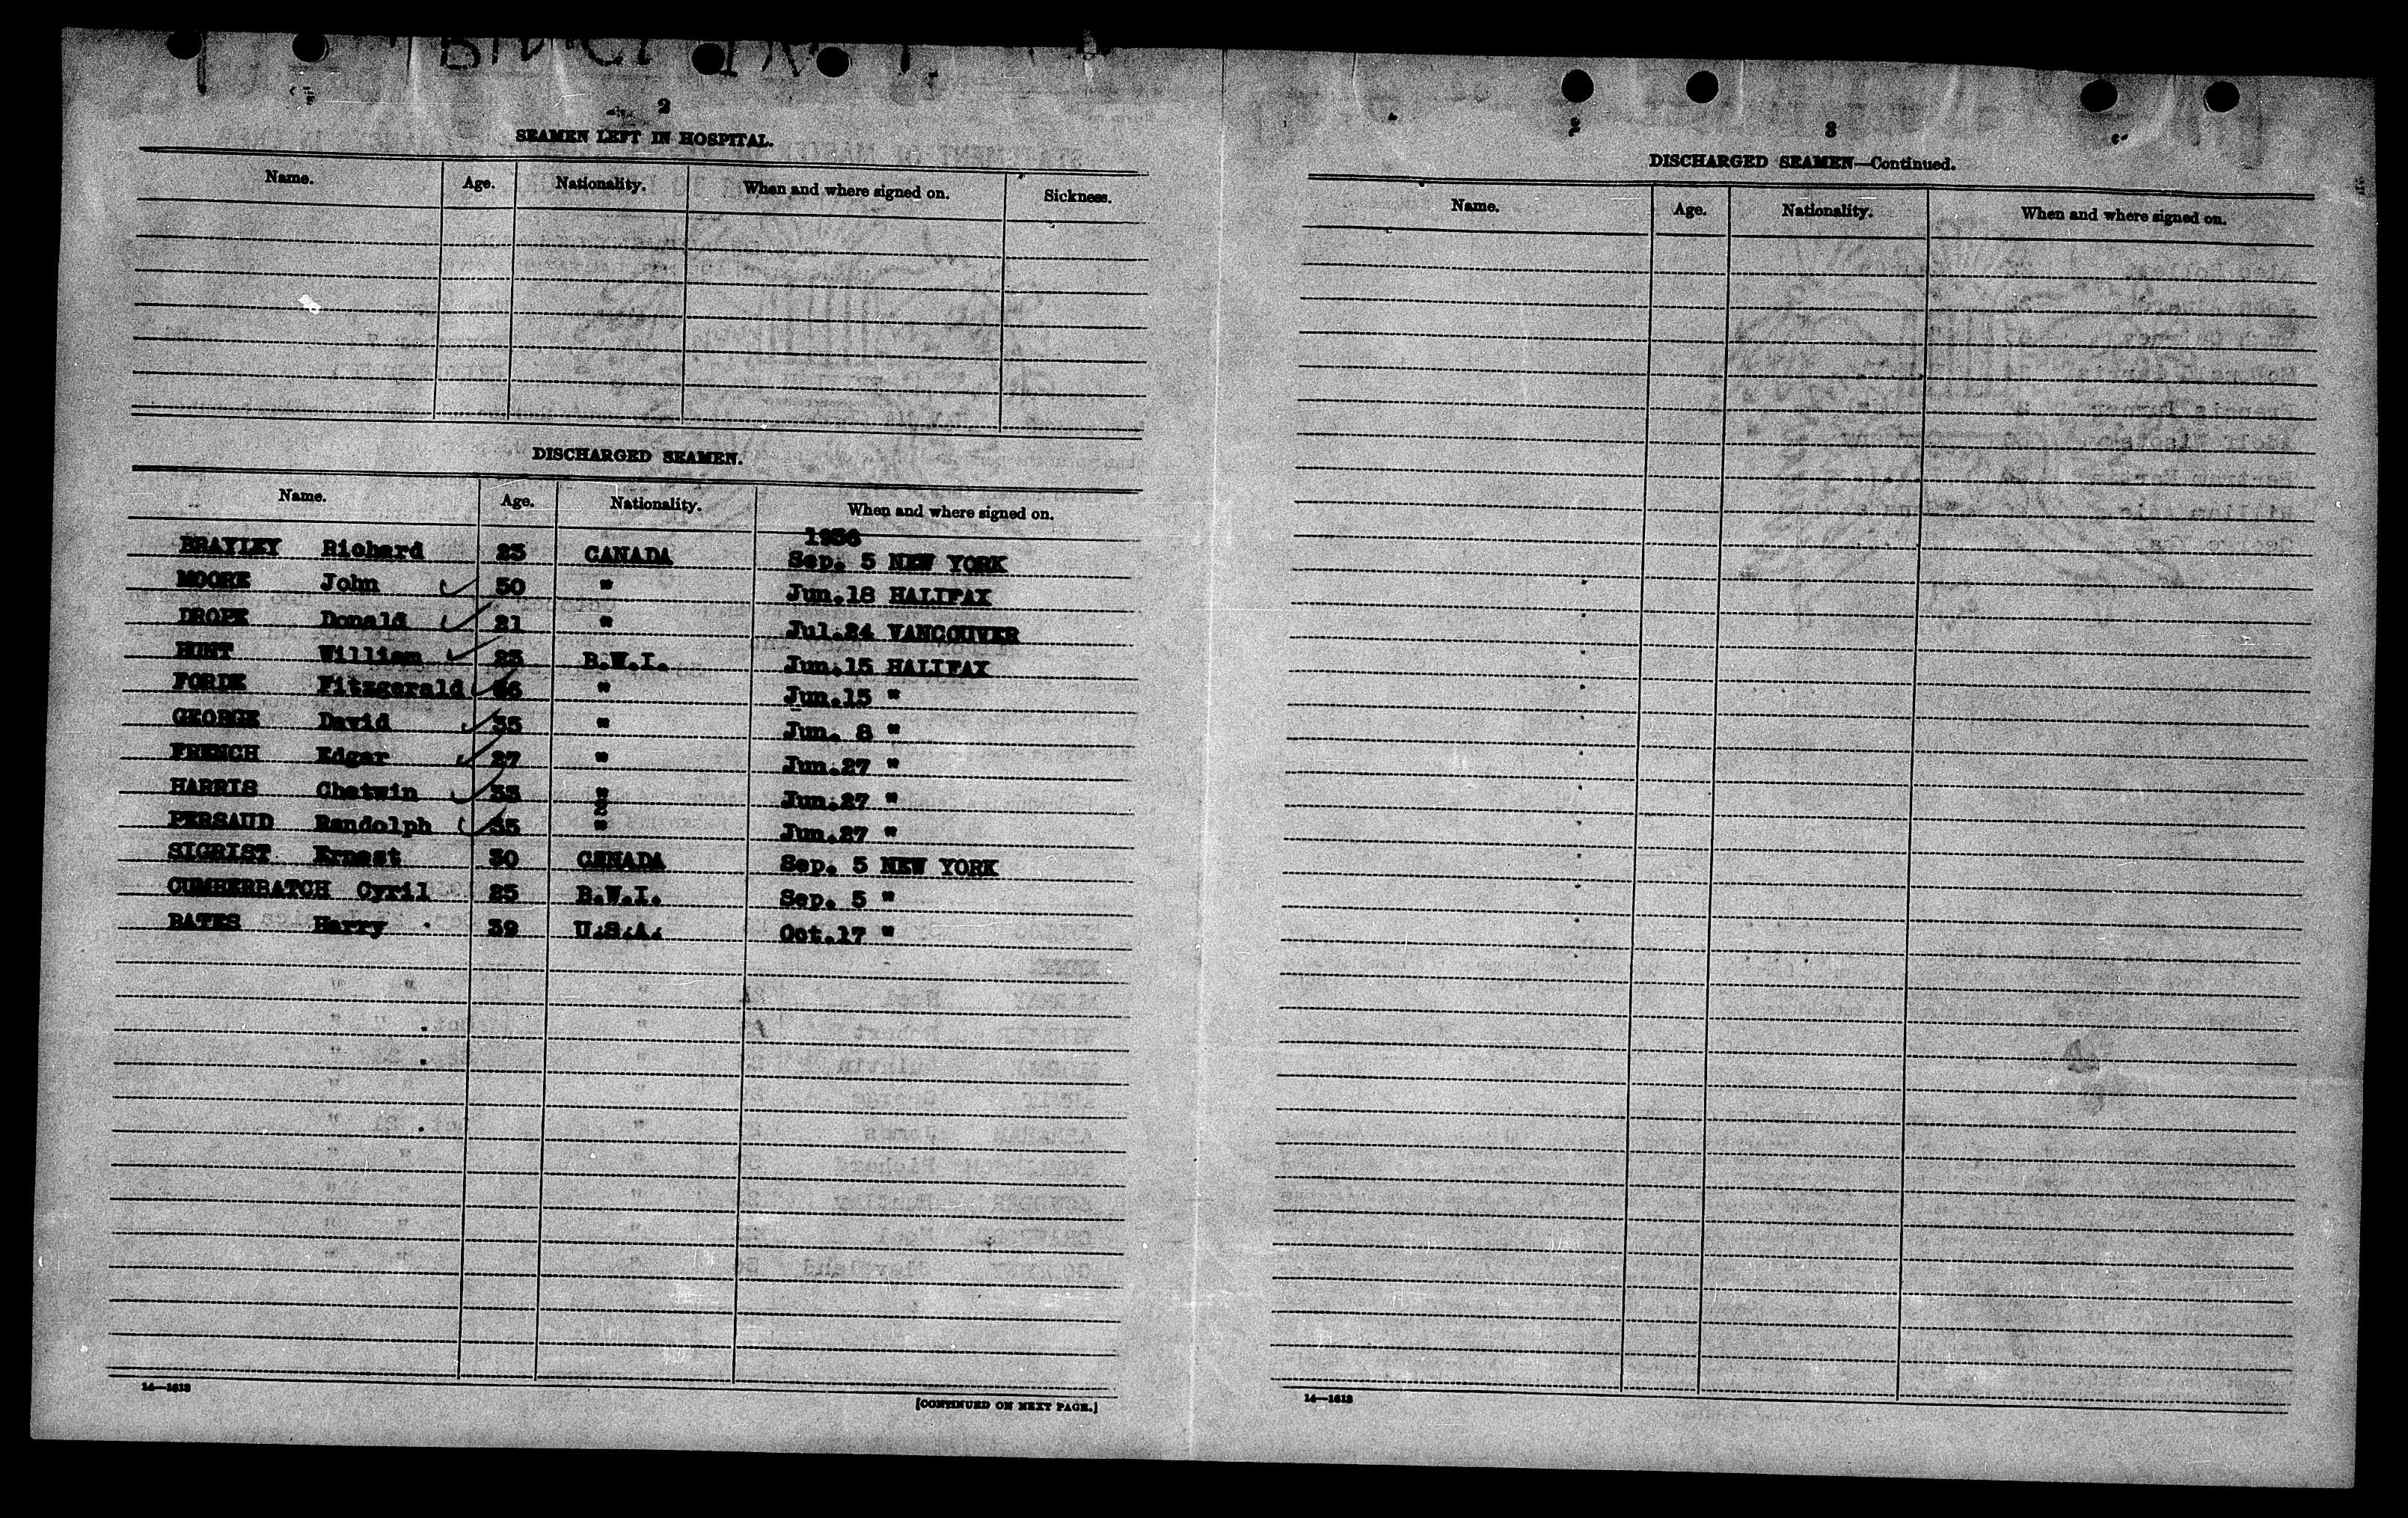 2
SEAMEN LEFT IN HOSPITAL.
Name. Age. Nationality. When and where signed on. Sickness.
DISCHARGED SEAMEN.
Name. Age. Nationality. When and where signed on.
1936
BRAYLEY Richard 23 CANADA Sep. 5 NEW YORK
MOORE John 50 " Jun.18 HALIFAX
DROPE Donald 21 " Jul.24 VANCOUVER
HUNT William 23 B.W.I. Jun.15 HALIFAX
FORDE Fitzgerald " Jun.15 "
GEORGE David 35 " Jun. 8 "
FRENCH Edgar 27 " Jun.27 "
HARRIS Chetwin 33 " Jun.27 "
PERSAUD Randolph 35 " Jun.27 "
SIGRIST Ernest 30 CANADA Sep. 5 NEW YORK
CUMBERBATCH Cyril 25 B.W.I. Sep. 5 "
BATES Harry 39 U.S.A. Oct.17 "
14—1613
[CONTINUED ON NEXT PAGE.]
3
DISCHARGED SEAMEN—Continued.
Name. Age. Nationality. When and where signed on.
14—1613